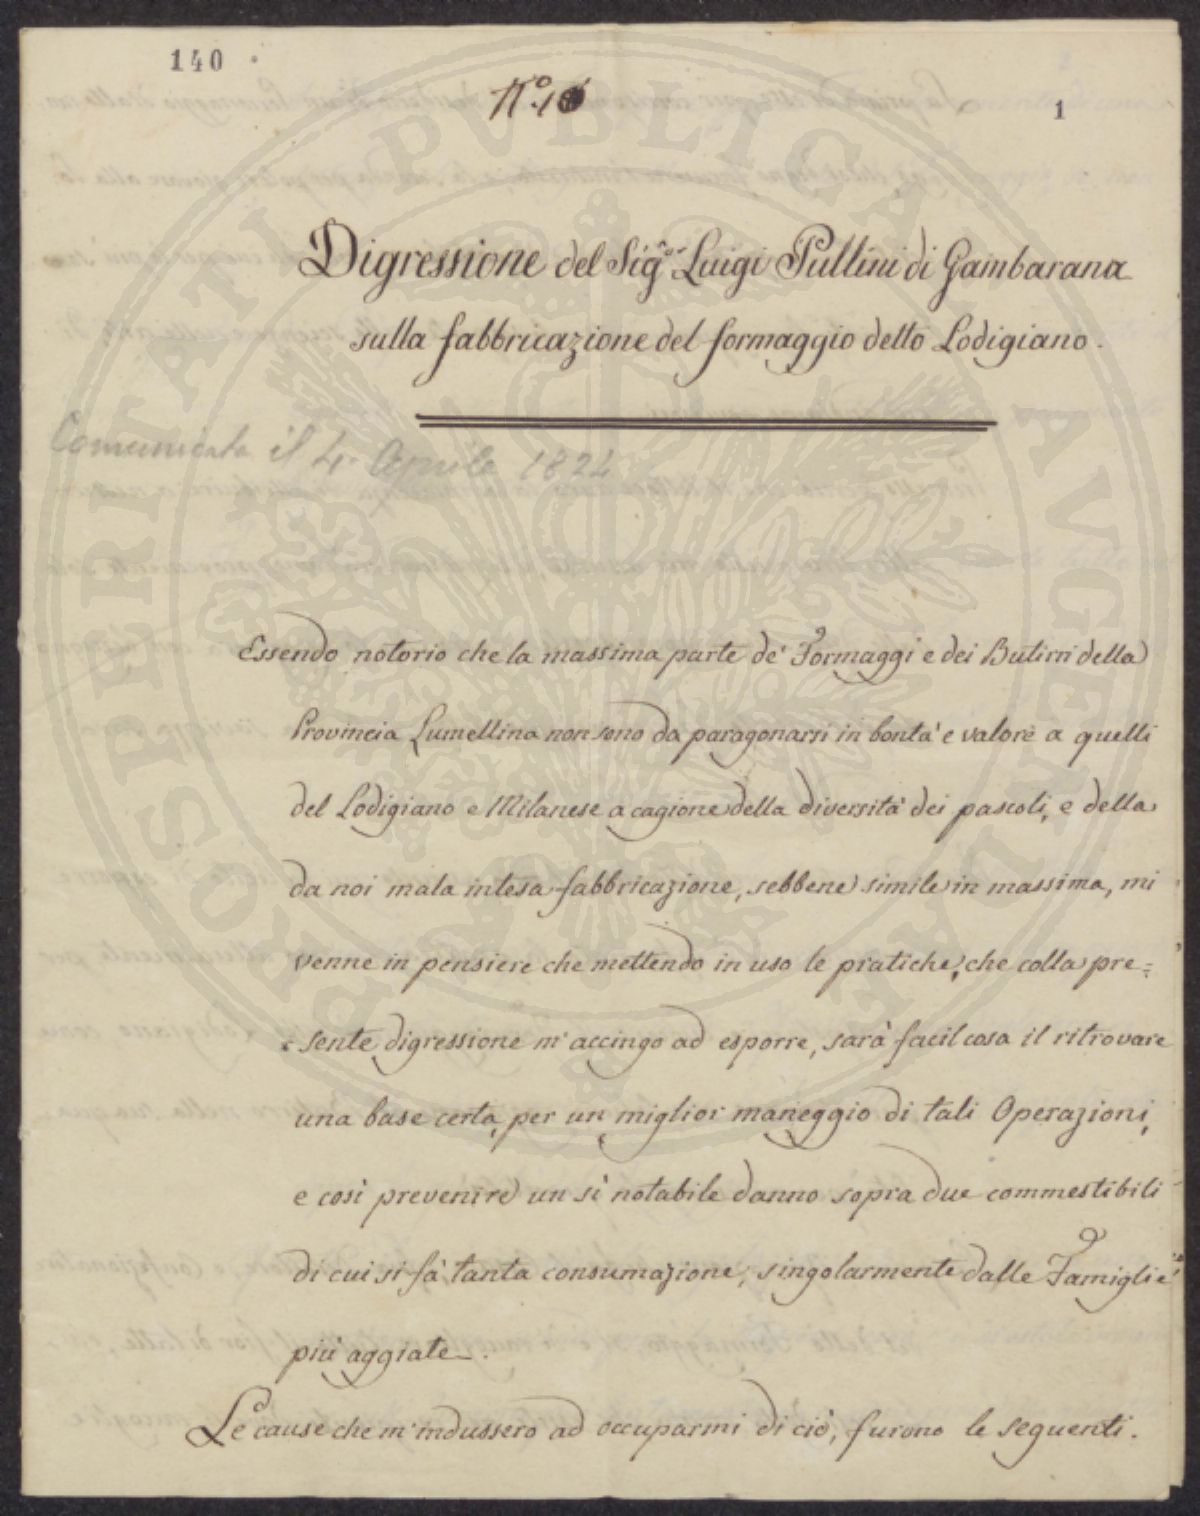 140
N.º 1
1
Digressione del Sig.or Luigi Pullini di Gambarana
sulla fabbricazione del formaggio detto Lodigiano.
Comunicata il 4. Aprile 1824
Essendo notorio che la massima parte de' Formaggi e dei Butirri della
Provincia Lumellina non sono da paragonarsi in bontà e valore a quelli
del Lodigiano e Milanese a cagione della diversità dei pascoli, e della
da noi mala intesa fabbricazione, sebbene simile in massima, mi
venne in pensiere che mettendo in uso le pratiche, che colla pre=
=sente digressione m'accingo ad esporre, sarà facil cosa il ritrovare
una base certa, per un miglior maneggio di tali Operazioni,
e così prevenire un sì notabile danno sopra due commestibili
di cui si fà tanta consumazione, singolarmente dalle Famiglie
più aggiate.
Le cause che m'indussero ad occuparmi di ciò, furono le seguenti.
PROSPERITATI PUBLICAE AUGENDAE